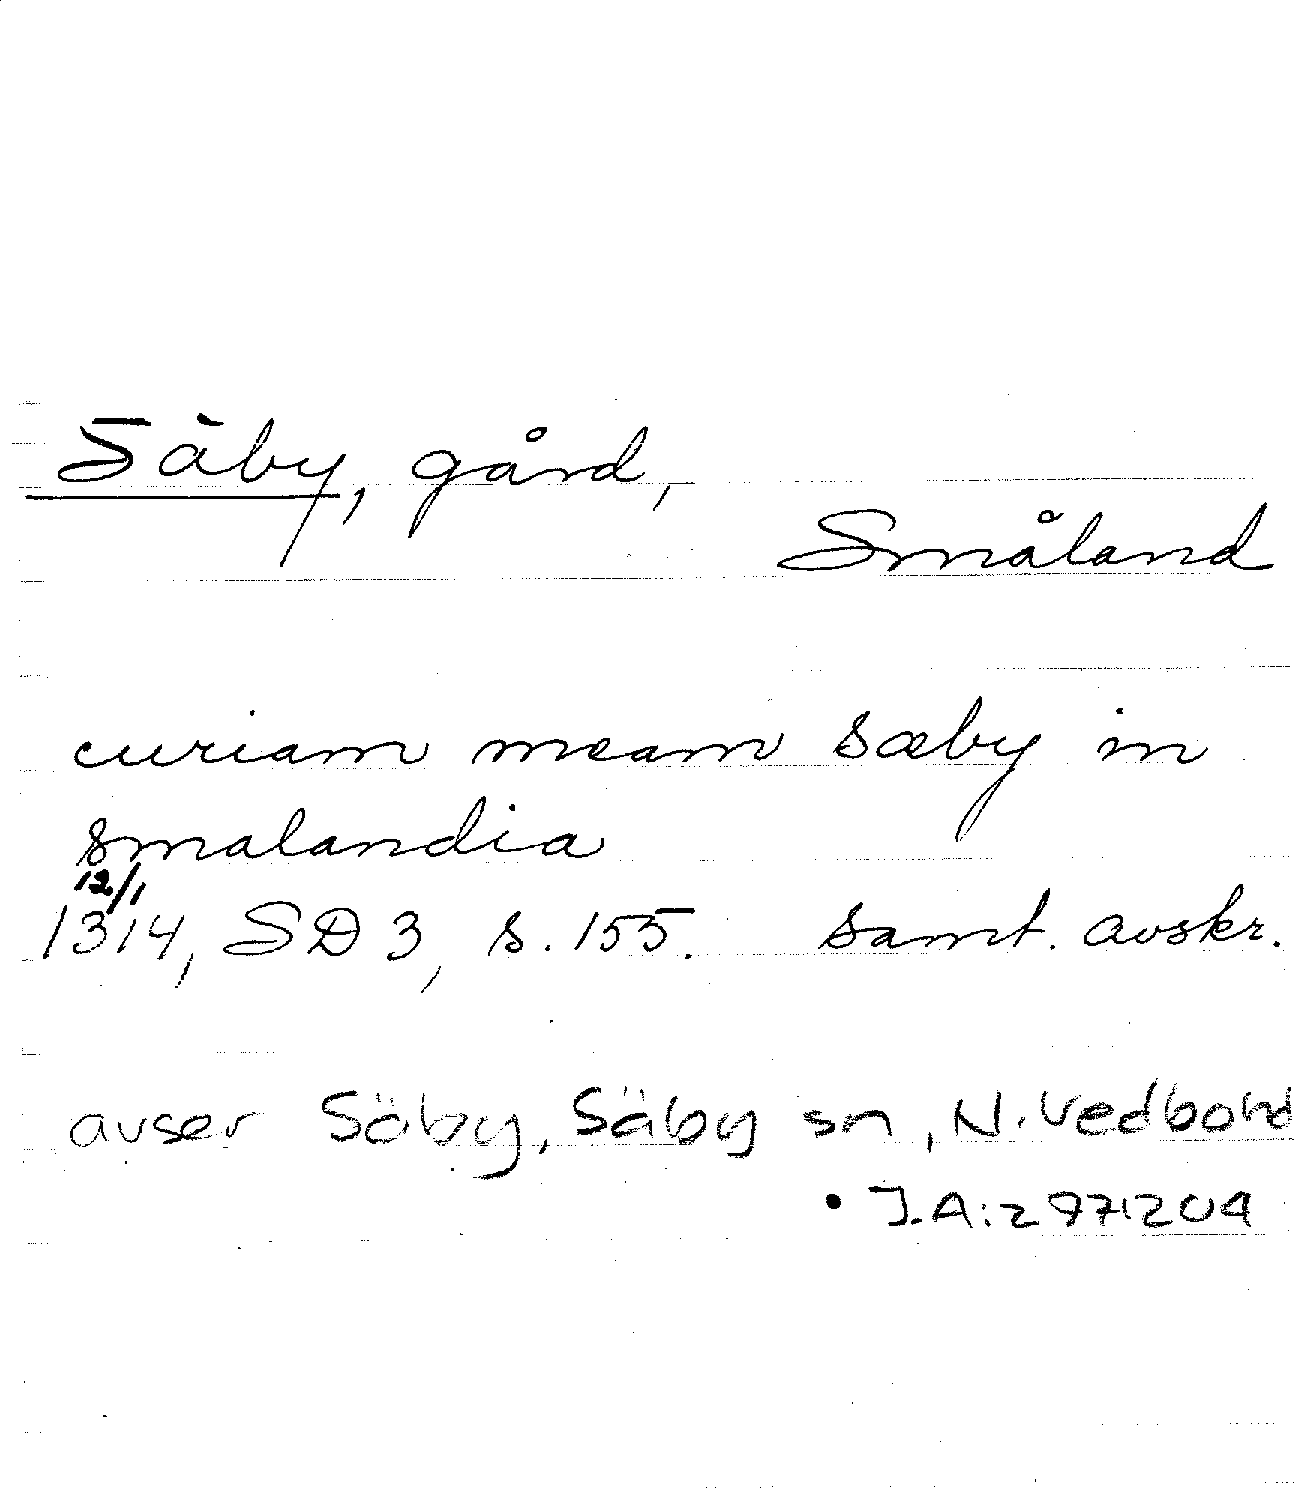 Säby, gård,
Småland
curiam meam sæby in
smalandia
12/1
1314, SD 3, s. 155. samt. avskr.
avser Säby, Säby sn, N. Vedbohd
• J.A: 2971204